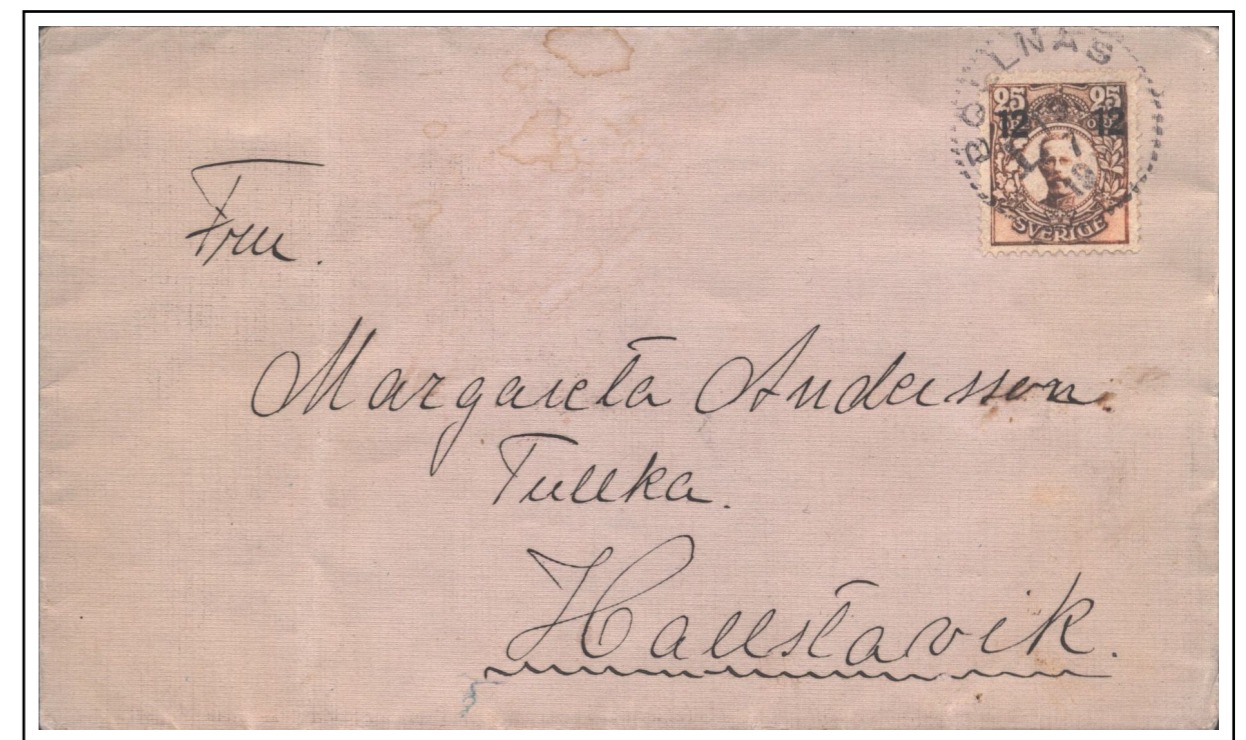 BOLLNÄS
25 25
12 12
SVERIGE
Fru.
Margareta Andersson.
Tullka.
Hallstavik.